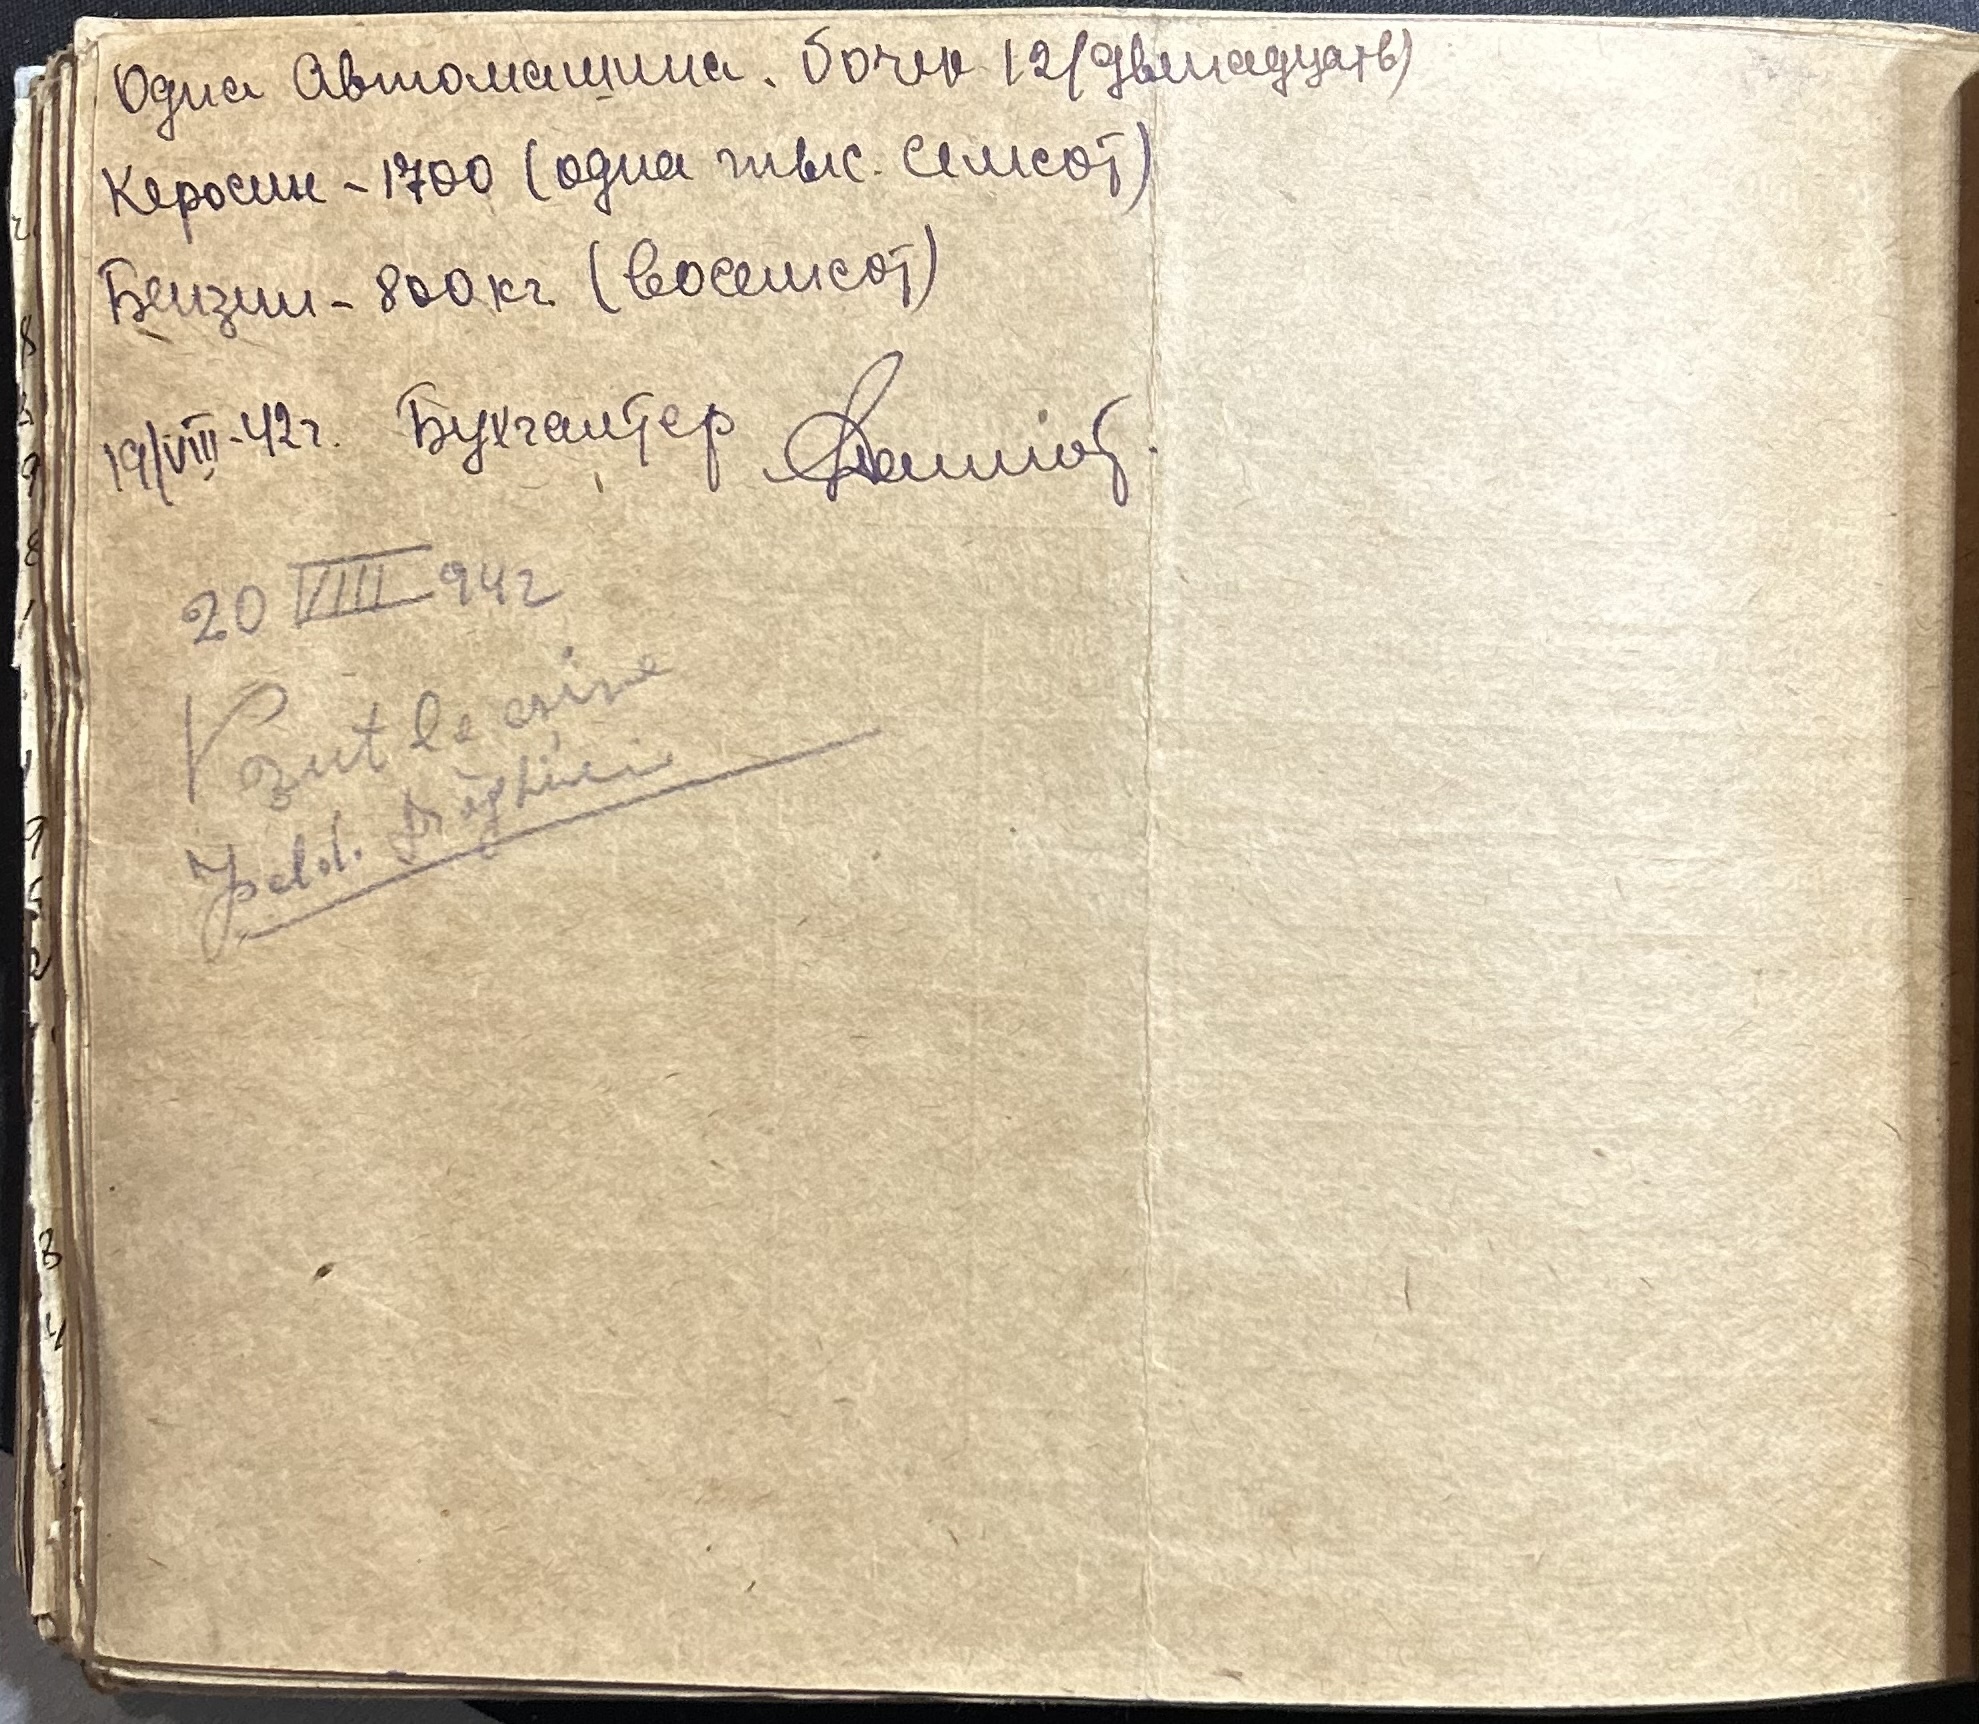 Одна Автомашина. бочек 12 (двенадцать)
Керосин - 1700 (одна тыс. Семсот)
Бензин - 800 кг. (восемсот)
19/VIII-42г. Бухгалтер
20 VIII 942
Vazut le crime